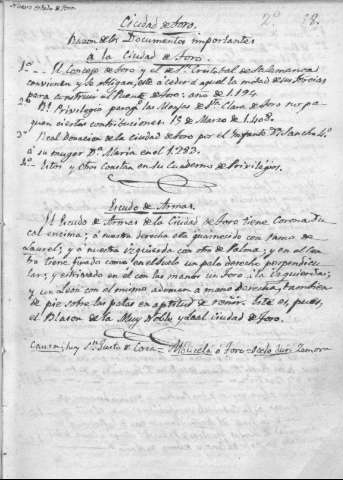 Ciudad de Toro.
Razon de los Documentos importantes
á la Ciudad de Toro.
1º El Concejo de Toro y el de Sn. Cristobal de Salamanca
convienen y se obligan, este á ceder á aquel la mitad de sus tercias
para construir el Puente de Toro: año de 1194.
2º Bl. Privilegio para q. las Monjas de Sta. Clara de Toro no pa-
guen ciertas contribuciones. 15 de Marzo de 1408.
3º Real Donacion de la ciudad de Toro por el Infante Dn. Sancho 4º
á su muger Dª Maria en el 1283.
4º Estos y otros constan en su Cuaderno de Privilegios.
Escudo de Armas.
El Escudo de Armas de la Ciudad de Toro tiene Corona Du-
cal encima; á nuestra derecha está guarnecido con ramo de
Laurel; y á nuestra izquierda con otro de Palma; y en el cen-
tro tiene fijado como en el suelo un palo derecho perpendicu-
lar; y estrivado en él con las manos un Toro á la izquierda;
y un Leon con el mismo ademan á mano derecha, tambien
de pie sobre las patas en aptitud de reñir. Este es, pues,
el Blason de la Muy Noble y Leal ciudad de Toro.
hoy Sn. Justo de Toro = á Toro = Zamora